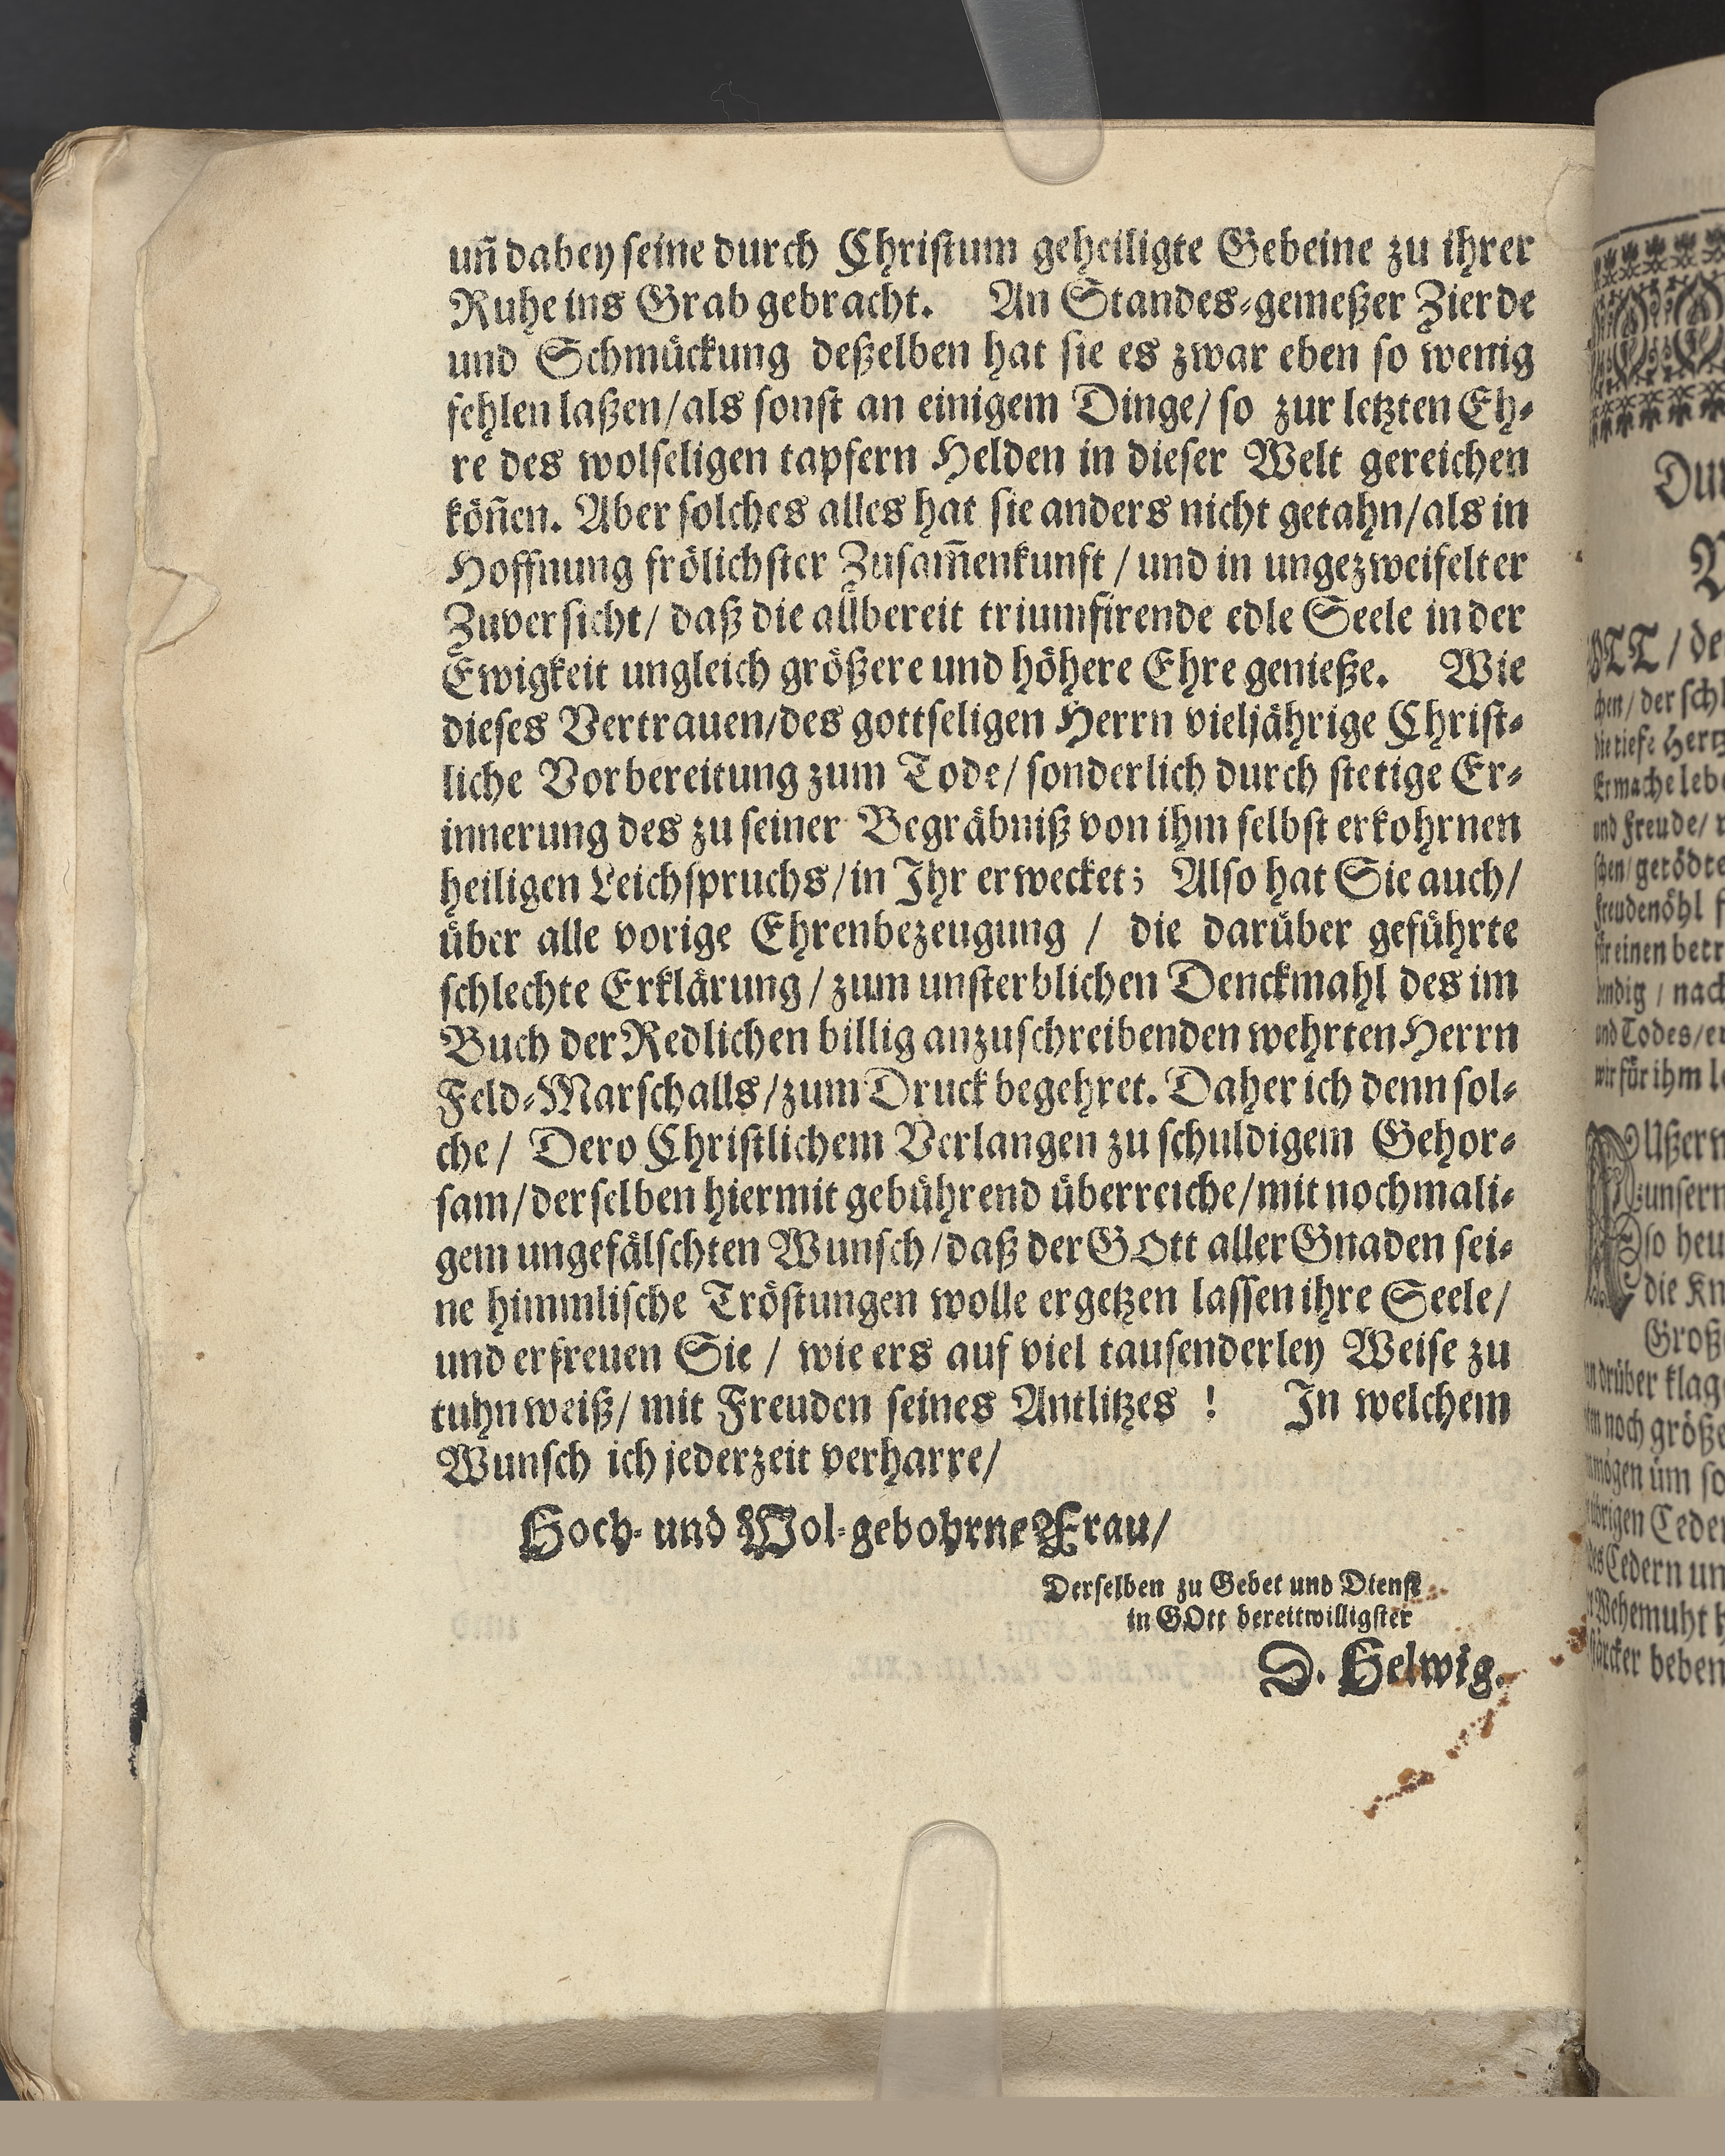 uñ dabey seine durch Christum geheiligte Gebeine zu ihrer
Ruhe ins Grab gebracht. An Standes-gemeßer Zierde
und Schmückung deßelben hat sie es zwar eben so wenig
fehlen laßen/als sonst an einigem Dinge/ so zur letzten Eh-
re des wolseligen tapfern Helden in dieser Welt gereichen
köñen. Aber solches alles hat sie anders nicht getahn/als in
Hoffnung frölichster Zusam̃enkunft / und in ungezweifelter
Zuversicht/ daß die allbereit triumfirende edle Seele in der
Ewigkeit ungleich größere und höhere Ehre genieße. Wie
dieses Vertrauen/des gottseligen Herrn vieljährige Christ-
liche Vorbereitung zum Tode/ sonderlich durch stetige Er-
innerung des zu seiner Begräbniß von ihm selbst erkohrnen
heiligen Leichspruchs/in Ihr erwecket; Also hat Sie auch/
über alle vorige Ehrenbezeugung / die darüber geführte
schlechte Erklärung/zum unsterblichen Denckmahl des im
Buch der Redlichen billig anzuschreibenden wehrten Herrn
Feld-Marschalls/zum Druck begehret. Daher ich denn sol-
che/ Dero Christlichem Verlangen zu schuldigem Gehor-
sam/derselben hiermit gebührend überreiche/mit nochmali-
gem ungefälschten Wunsch/daß der GOtt aller Gnaden sei-
ne himmlische Tröstungen wolle ergetzen lassen ihre Seele/
und erfreuen Sie / wie ers auf viel tausenderley Weise zu
tuhn weiß/ mit Freuden seines Antlitzes ! In welchem
Wunsch ich jederzeit verharre/
Hoch- und Wol-gebohrne Frau/
Derselben zu Gebet und Dienst
in GOtt bereitwilligster
D. Helwig.